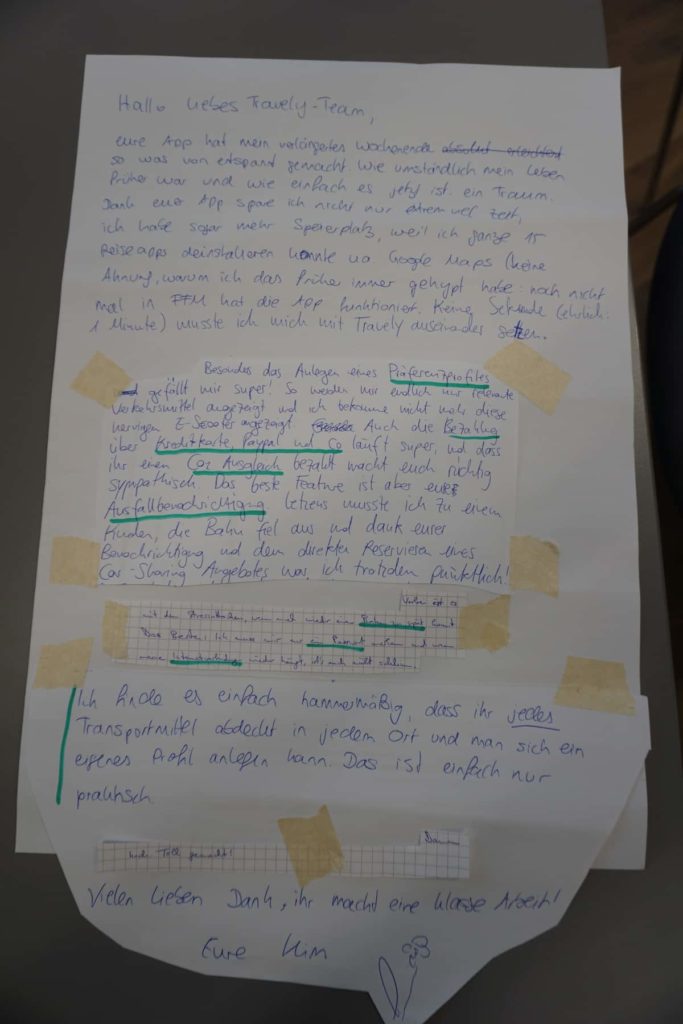 Hallo liebes Travely-Team,
eure App hat mein verlängertes Wochenende absolut erleichtert
so was von entspannt gemacht. Wie umständlich mein Leben
früher war und wie einfach es jetzt ist. ein Traum.
Dank eurer App spare ich nicht nur extrem viel Zeit,
ich habe sogar mehr Speicherplatz, weil ich ganze 15
Reiseapps deinstallieren konnte ua Google Maps (keine
Ahnung, warum ich das früher immer gehypt habe: noch nicht
mal in FFM hat die App funktioniert. Keine Sekunde (ehrlich:
1 Minute) musste ich mich mit Travely auseinander setzen.
Besonders das Anlegen eines Präferenzprofiles
gefällt mir super! So werden mir endlich nur relevante
Verkehrsmittel angezeigt und ich bekomme nicht mehr diese
nervigen E-Scooter angezeigt. Auch die Bezahlung
über Kreditkarte, Paypal und Co läuft super, und dass
ihr einen CO2 Ausgleich bezahlt macht euch richtig
sympathisch. Das beste Feature ist aber eure
Ausfallbenachrichtigung. Letztens musste ich zu einem
Kunden, die Bahn fiel aus und dank eurer
Benachrichtigung und dem direkten Reservieren eines
Car-Sharing Angebotes war ich trotzdem pünktlich!
mit den, wenn mal wieder eine kommt
Das Beste: Ich muss mir nur ein Passwort merken und wenn
meine wieder hängt, ist auch nicht schlimm.
Ich finde es einfach hammermäßig, dass ihr jedes
Transportmittel abdeckt in jedem Ort und man sich ein
eigenes Profil anlegen kann. Das ist einfach nur
praktisch.
Toll gemacht!
Vielen lieben Dank, ihr macht eine klasse Arbeit!
Eure Kim